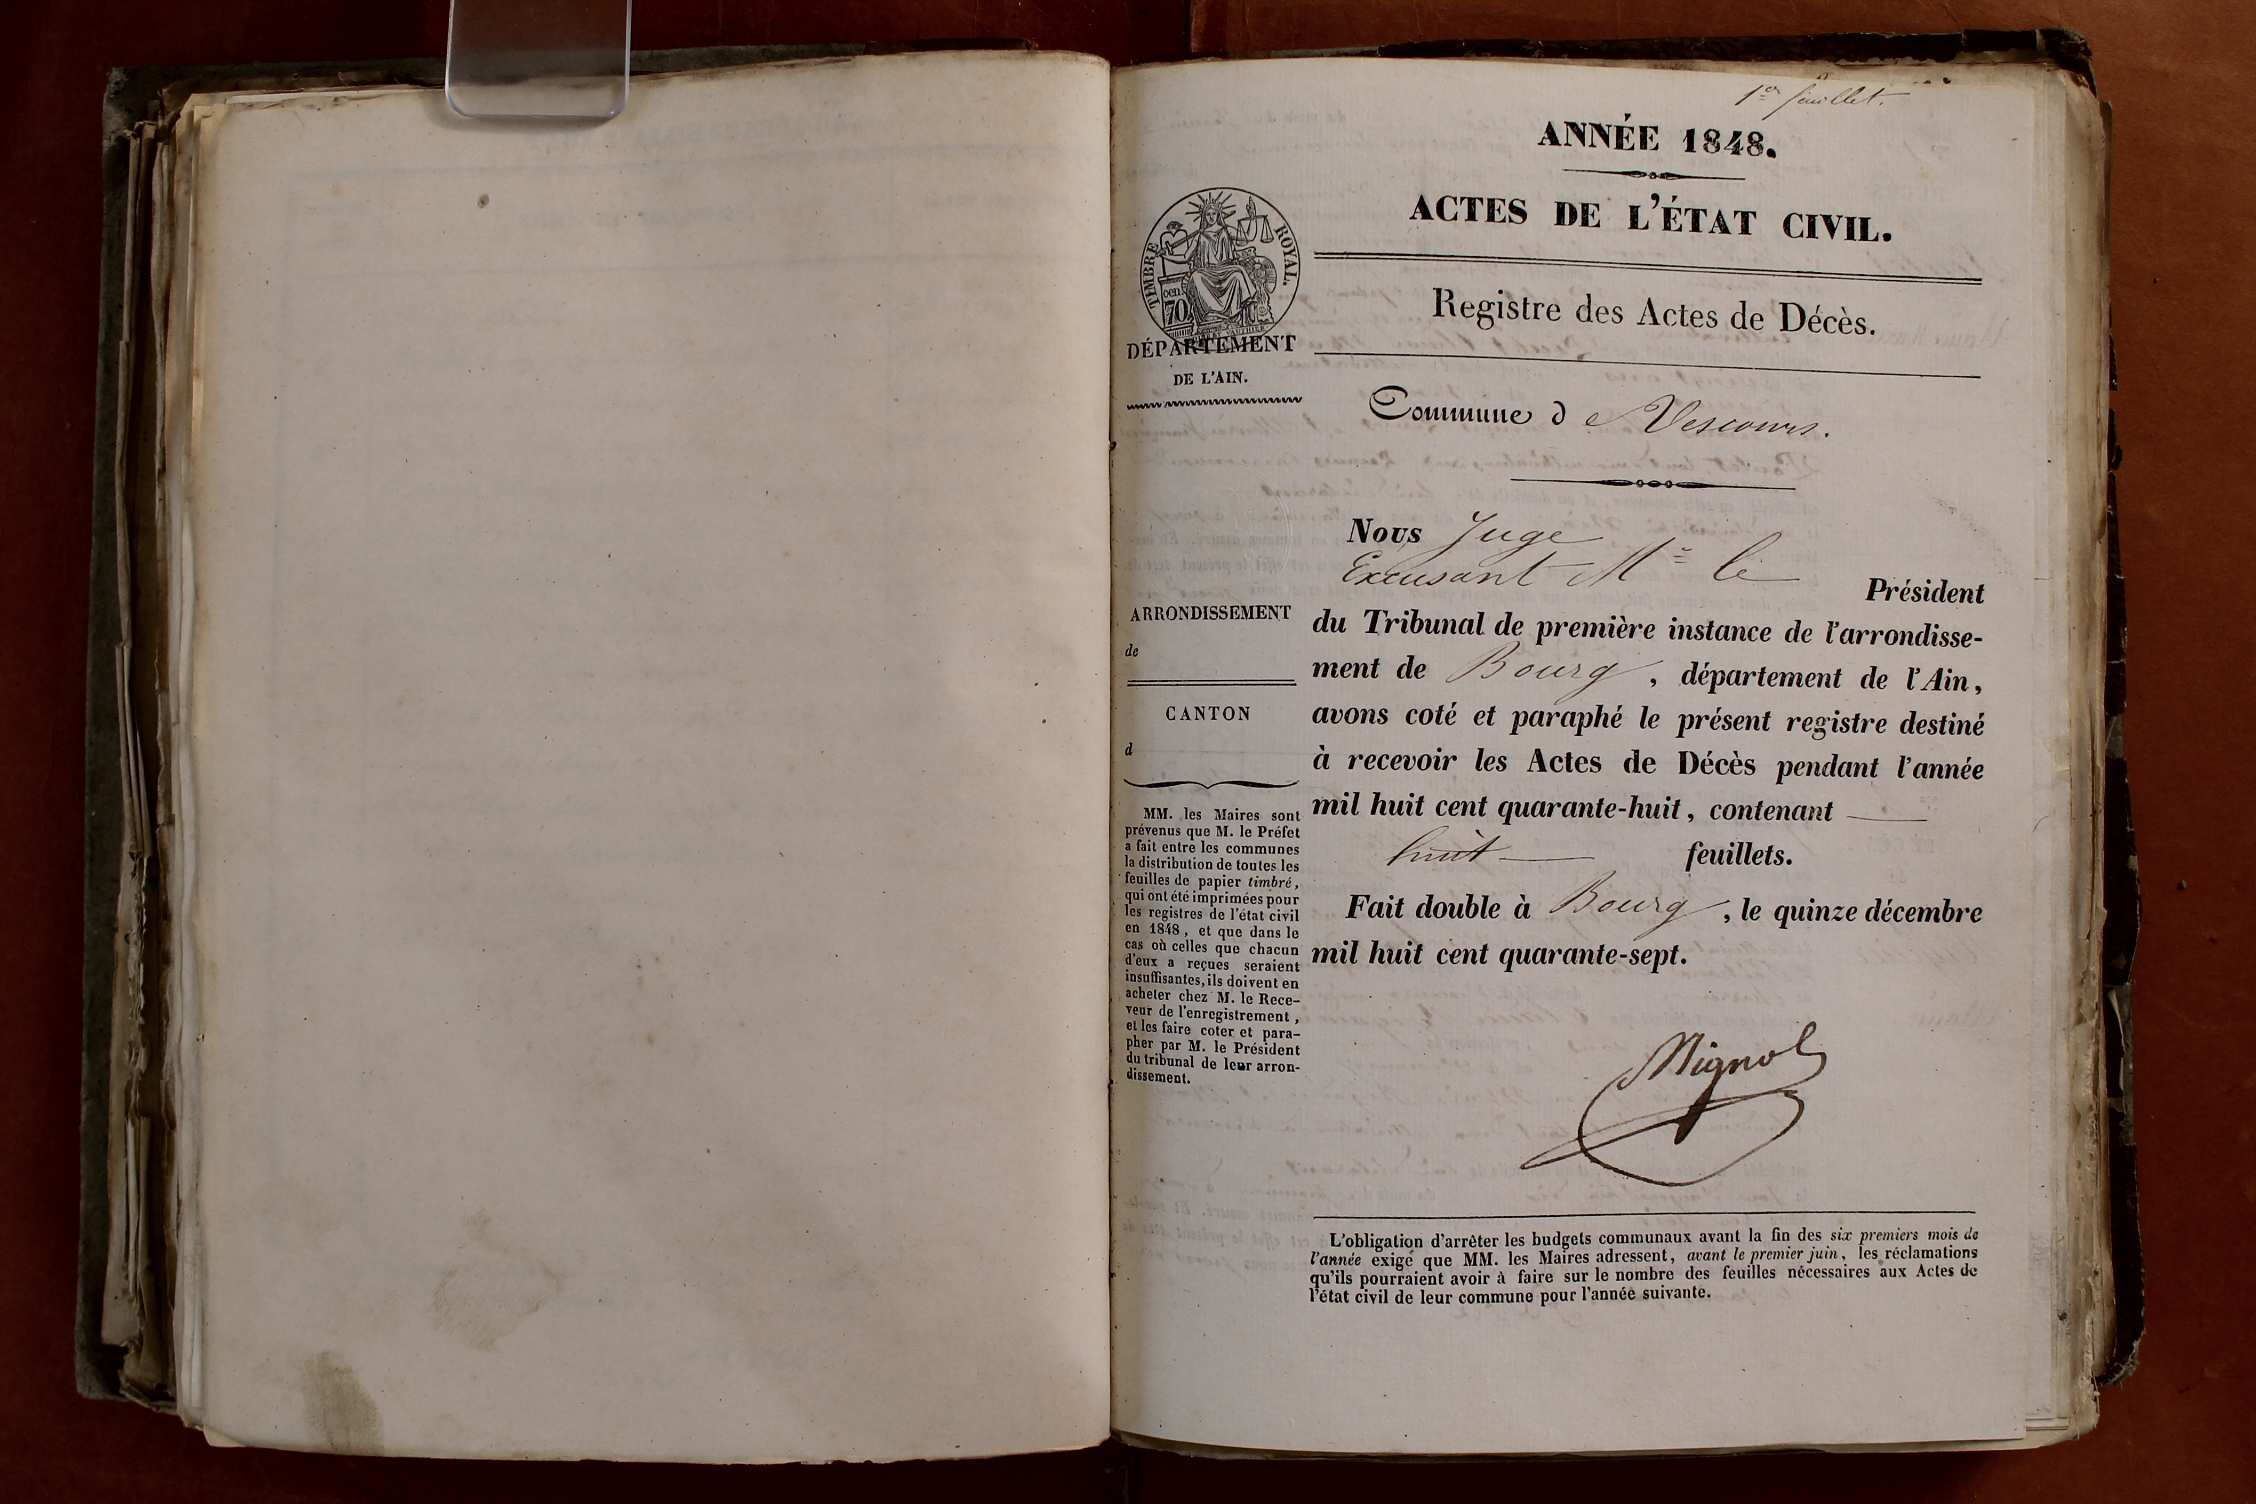 1er feuillet.
ANNÉE 1848.
ACTES DE L'ÉTAT CIVIL.
TIMBRE ROYAL.
cen. 70
DÉPARTEMENT
DE L'AIN.
Registre des Actes de Décès.
Commune de Vescours.
Nous Juge
Excusant Mr le Président
du Tribunal de première instance de l'arrondisse-
ment de Bourg, département de l'Ain,
avons coté et paraphé le présent registre destiné
à recevoir les Actes de Décès pendant l'année
mil huit cent quarante-huit, contenant
huit feuillets.
Fait double à Bourg, le quinze décembre
mil huit cent quarante-sept.
Mignol
ARRONDISSEMENT
de
CANTON
d
MM. les Maires sont
prévenus que M. le Préfet
a fait entre les communes
la distribution de toutes les
feuilles de papier timbré,
qui ont été imprimées pour
les registres de l'état civil
en 1848, et que dans le
cas où celles que chacun
d'eux a reçues seraient
insuffisantes, ils doivent en
acheter chez M. le Rece-
veur de l'enregistrement,
et les faire coter et para-
pher par M. le Président
du tribunal de leur arron-
dissement.
L'obligation d'arrêter les budgets communaux avant la fin des six premiers mois de
l'année exige que MM. les Maires adressent, avant le premier juin, les réclamations
qu'ils pourraient avoir à faire sur le nombre des feuilles nécessaires aux Actes de
l'état civil de leur commune pour l'année suivante.